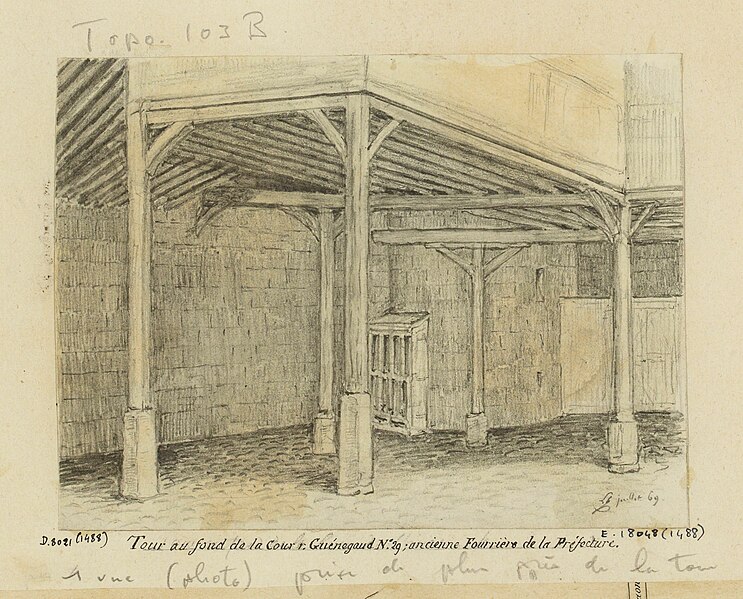 Topo. 103 B
juillet 69.
D.8021 (1488)
E. 18048 (1488)
Tour au fond de la Cour r. Guénegaud N.º 29; ancienne Fourrière de la Préfecture.
1 vue (photo) prise de plus près de la tour